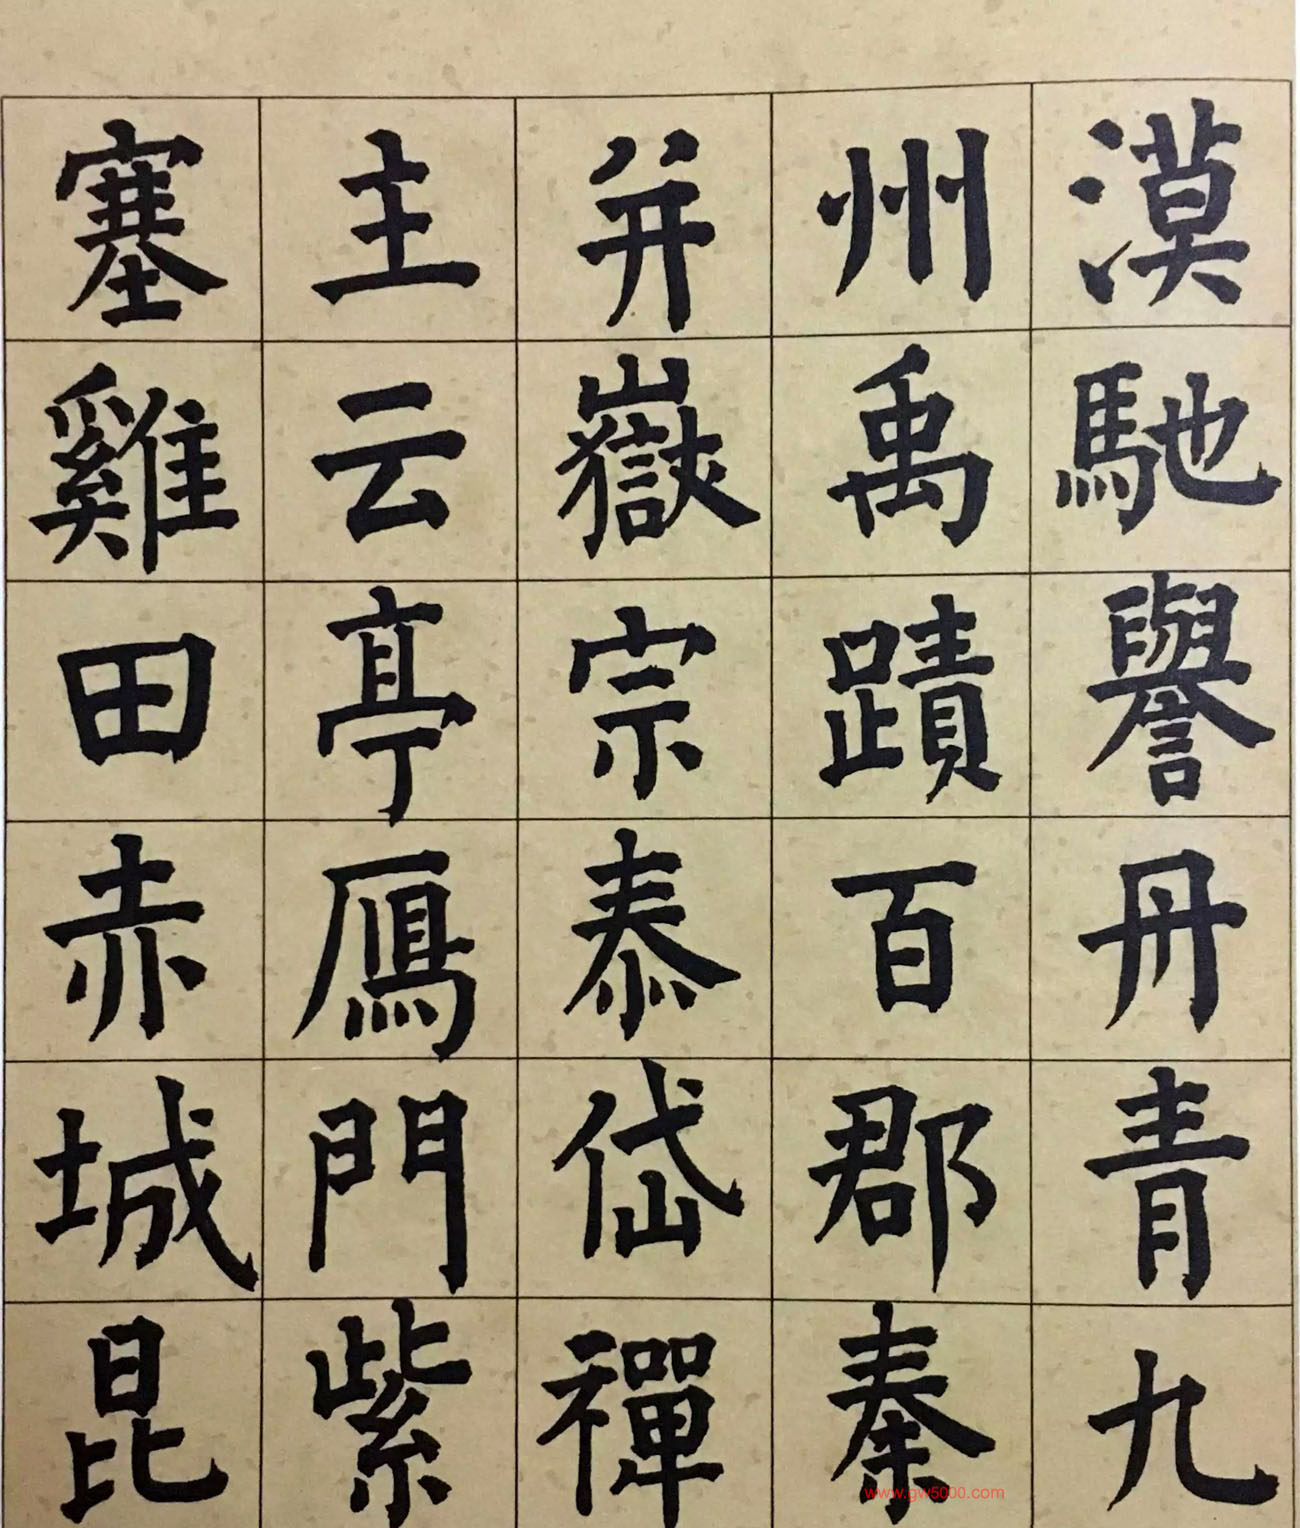 漠馳譽丹青九
州禹蹟百郡秦
并嶽宗泰岱禪
主云亭鴈門紫
塞雞田赤城昆
www.gw5000.com